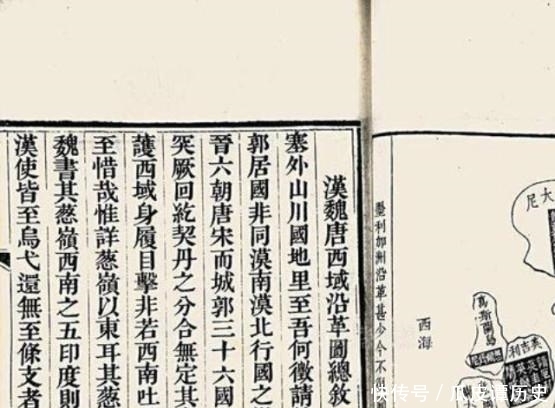 大尼
英吉利
西海
墨利加洲沿革甚少今不
漢魏唐西域沿革圖總敘
塞外山川國地里至吾何徵請
郭居國非同漠南漠北行國之
晉六朝唐宋而城郭三十六國
突厥回紇契丹之分合無定其
護西域身履目擊非若西南吐
至惜哉惟詳葱嶺以東耳其葱
魏書其葱嶺西南之五印度則
漢使皆至烏弋還無至條支者
快传号/瓜皮谭历史